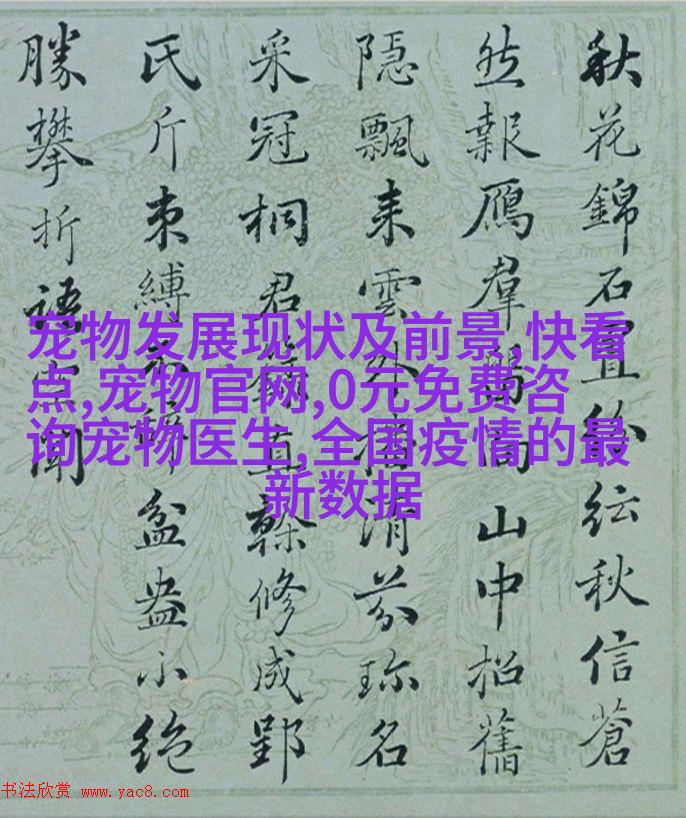 秋花錦石紛紜秋信蒼
然報鴈羣向山中招舊
隱飄来雲外播清芬珎名
采冠桐君錄直榦修成郢
氏斤束縛永辭盆盎小絶
勝攀折語聞
宠物发展现状及前景,快看
点,宠物官网,0元免费咨
询宠物医生,全国疫情的最
新数据
书法欣赏 www.yac8.com